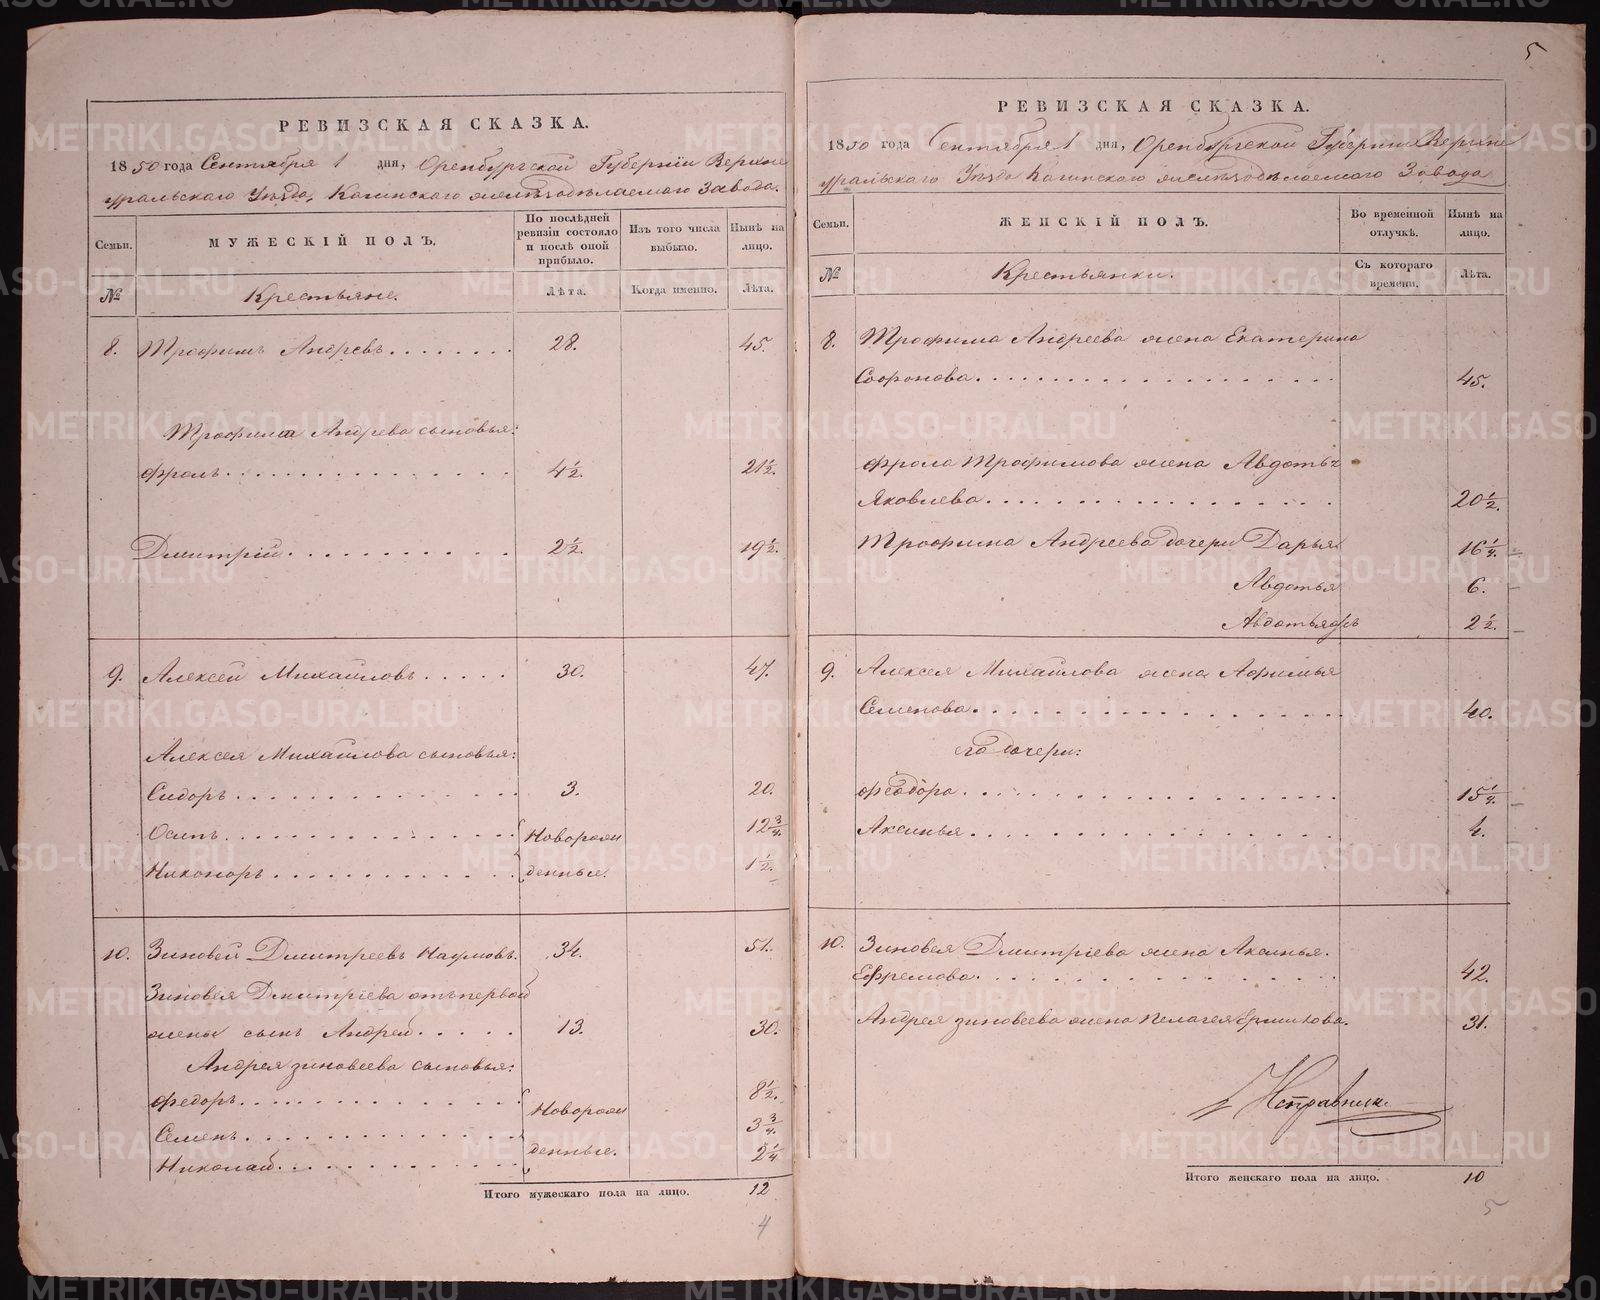 РЕВИЗСКАЯ СКАЗКА.
1850 года Сентября 1 дня, Оренбургской Губерніи Верхне
уральскаго Уѣзда, Кагинскаго желѣзодѣлаемаго Завода.
Семьи. МУЖЕСКІЙ ПОЛЪ. По послѣдней ревизіи состояло и послѣ оной прибыло. Изъ того числа выбыло. Нынѣ на лицо.
№ Крестьяне. Лѣта. Когда именно. Лѣта.
8. Трофимъ Андревъ 28. 45.
Трофима Андрева сыновья:
Фролъ 4½. 21½.
Дмитрій 2½. 19½.
9. Алексей Михайловъ 30. 47.
Алексея Михайлова сыновья:
Сидоръ 3. 20.
Осипъ Новорож 12¾
Никоноръ денные. 1½.
10. Зиновей Дмитреевъ Наумовъ. 34. 51.
Зиновея Дмитріева отъ первой
жены сынъ Андрей 13. 30.
Андрея Зиновеева сыновья:
Федоръ 8½.
Семенъ Новорож 3¾.
Николай денные. 2¼
Итого мужескаго пола на лицо. 12
4
5
РЕВИЗСКАЯ СКАЗКА.
1850 года Сентября 1 дня, Оренбургской Губерніи Верхне
уральскаго Уѣзда Кагинскаго желѣзодѣлаемаго Завода
Семьи. ЖЕНСКІЙ ПОЛЪ. Во временной отлучкѣ. Нынѣ на лицо.
№ Крестьянки. Съ котораго времени. Лѣта.
8. Трофима Андреева жена Екатерина
Софронова 45.
Фрола Трофимова жена Авдотья
Яковлева 20½.
Трофима Андреева дочери Дарья 16¼.
Авдотья 6.
Авдотья 2½.
9. Алексея Михайлова жена Афимья
Семенова 40.
го дочери:
Феодора 15½.
Аксинья 4.
10. Зиновея Дмитріева жена Аксинья.
Ефремова 42.
Андрея Зиновеева жена Пелагея Ермилова. 31.
Исправник
Итого женскаго пола на лицо. 10
5
METRIKI.GASO-URAL.RU